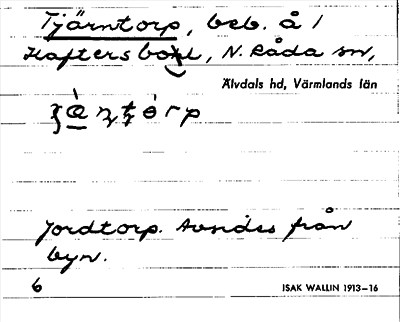 Tjärntorp, beb. å 1
Haftersbol, N. Råda sn,
Älvdals hd, Värmlands län
Jordtorp. Avsndes från
byn.
6
ISAK WALLIN 1913–16